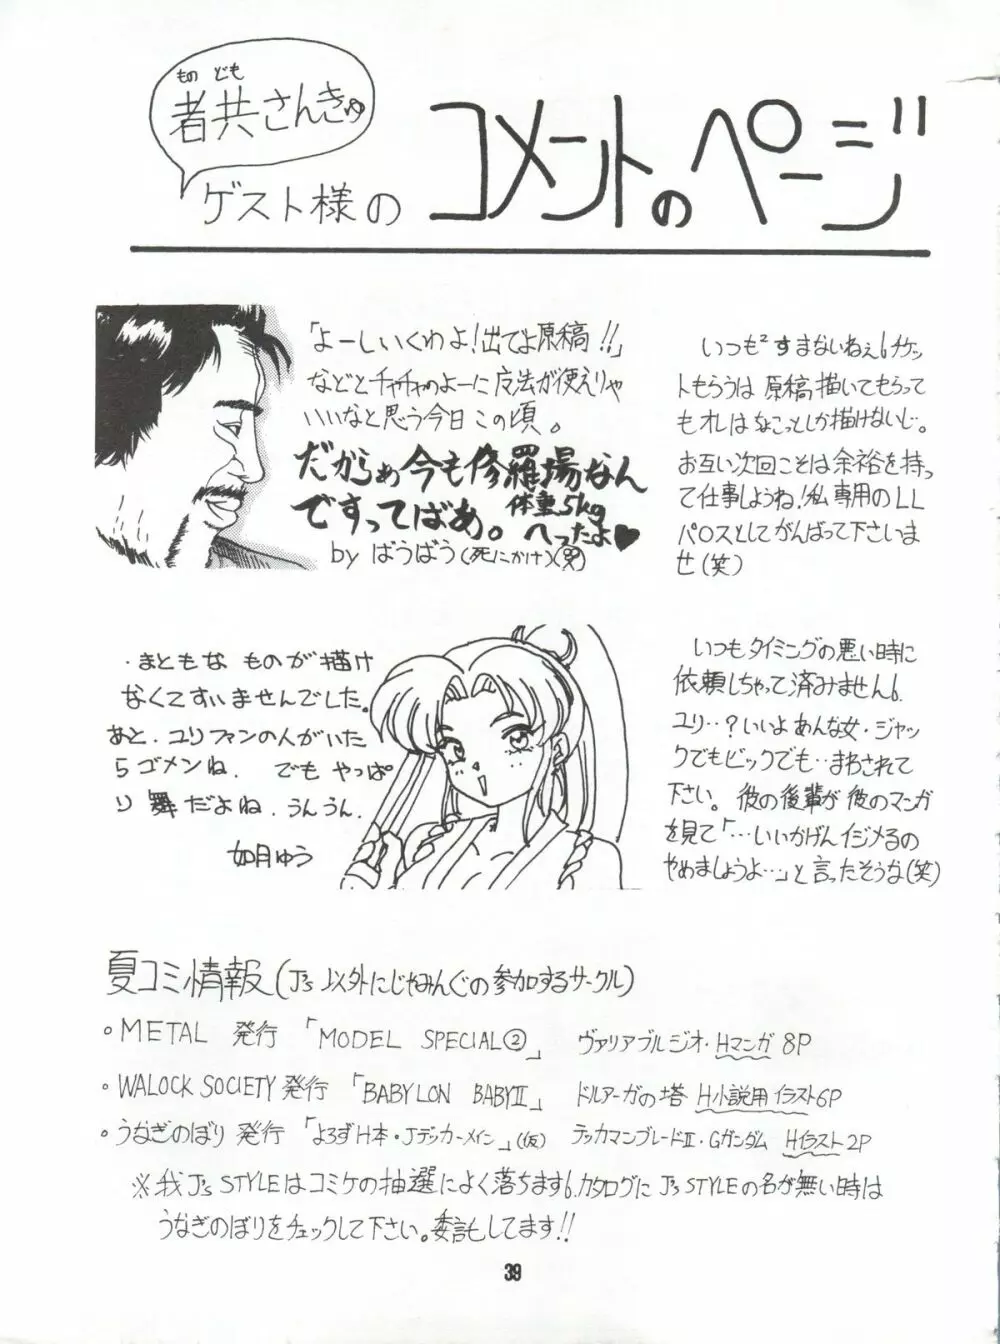 もの ども
者共さんきゅ
ゲスト様の コメントのページ
「よーしいくわよ!出てよ原稿!!」
などとチャチャのよーに 魔法が使えりゃ
いいなと思う今日この頃。
だからぁ今も修羅場なん
ですってばあ。体重5kg
へったよ♥
by ばうばう(死にかけ)(男)
いつも²すまないねぇ。チケッ
トもらうは 原稿描いてもらって
もオレはなこっとしか描けないし。
お互い次回こそは余裕を持っ
て仕事しようね!私専用のLL
パロスとしてがんばって下さいま
せ(笑)
・まともな ものが描け
なくてすいませんでした。
あと、ユリファンの人がいた
らゴメンね. でも やっぱ
り 舞だよね.うんうん.
如月ゆう
いつもタイミングの悪い時に
依頼しちゃって済みません。
ユリ‥?いいよあんな女・ジャッ
クでもビックでも‥まわされて
下さい。彼の後輩が彼のマンガ
を見て「…いいかげんイジメるの
やめましょうよ…」と言ったそうな(笑)
夏コミ情報(J's以外にじゃみんぐの参加するサークル)
○METAL 発行 「MODEL SPECIAL②」 ヴァリアブルジオ・Hマンガ 8P
○WALOCK SOCIETY発行 「BABYLON BABYⅡ」 ドルアーガの塔 H小説用イラスト6P
○うなぎのぼり 発行 「よろずH本・Jデッカーメイン」(仮) テッカマンブレードⅡ・Gガンダム Hイラスト2P
※我J's STYLEはコミケの抽選によく落ちます。カタログに J's STYLEの名が無い時は
うなぎのぼりをチェックして下さい。委託してます!!
39